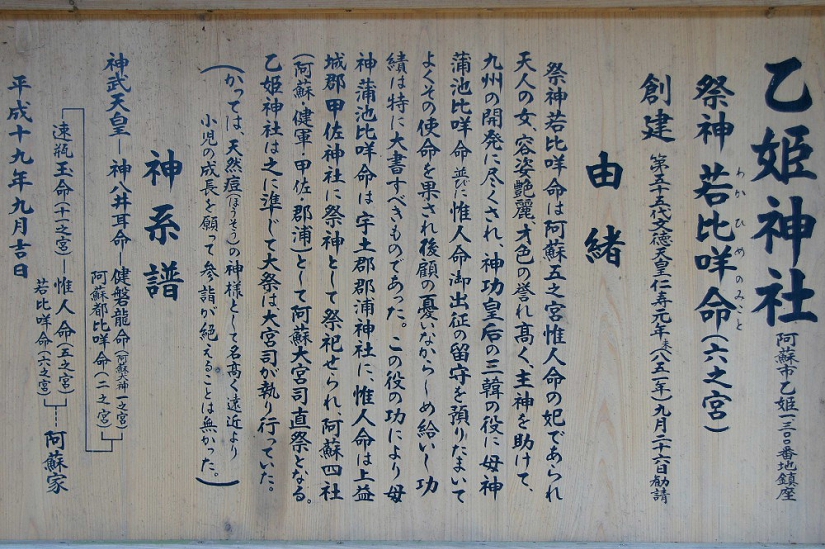 乙姫神社 阿蘇市乙姫一三〇〇番地鎮座
祭神 若比咩命(六之宮)
わかひめのみこと
創建 第五十五代文徳天皇仁寿元年(八五一年)九月二十六日勧請
由緒
祭神若比咩命は阿蘇五之宮惟人命の妃であられ
天人の女、容姿艶麗、才色の誉れ高く、主神を助けて、
九州の開発に尽くされ、神功皇后の三韓の役に母神
蒲池比咩命並びに惟人命御出征の留守を預りたまいて
よくその使命を果され後顧の憂いなからしめ給いし功
績は特に大書すべきものであった。この役の功により母
神蒲池比咩命は宇土郡郡浦神社に、惟人命は上益
城郡甲佐神社に祭神として祭祀せられ、阿蘇四社
(阿蘇・健軍・甲佐・郡浦)として阿蘇大宮司直祭となる。
乙姫神社は之に準じて大祭は大宮司が執り行っていた。
(かっては、天然痘(ほうそう)の神様として名高く遠近より
小児の成長を願って参詣が絶えることは無かった。)
神系譜
神武天皇―神八井耳命―健磐龍命(阿蘇大神一之宮)
阿蘇都比咩命(二之宮)
速瓶玉命(十一之宮)―惟人命(五之宮)
若比咩命(六之宮)
阿蘇家
平成十九年九月吉日